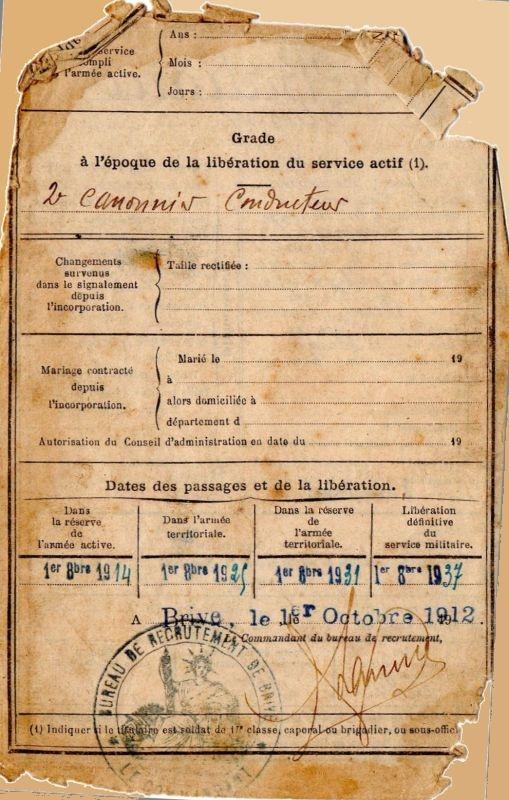 Ans :
service
compli
l'armée active.
Mois :
Jours :
Grade
à l'époque de la libération du service actif (1).
2e Canonnier Conducteur
Changements
survenus
dans le signalement
depuis
l'incorporation.
Taille rectifiée :
Mariage contracté
depuis
l'incorporation.
Marié le 19
à
alors domiciliée à
département d
Autorisation du Conseil d'administration en date du 19
Dates des passages et de la libération.
Dans
la réserve
de
l'armée active.
Dans l'armée
territoriale.
Dans la réserve
de
l'armée
territoriale.
Libération
définitive
du
service militaire.
1er 8bre 1914
1er 8bre 1925
1er 8bre 1931
1er 8bre 1937
A Brive, le 1er Octobre 1912.
Le Commandant du bureau de recrutement,
BUREAU DE RECRUTEMENT DE BRIVE
(1) Indiquer si le titulaire est soldat de 1re classe, caporal ou brigadier, ou sous-offic